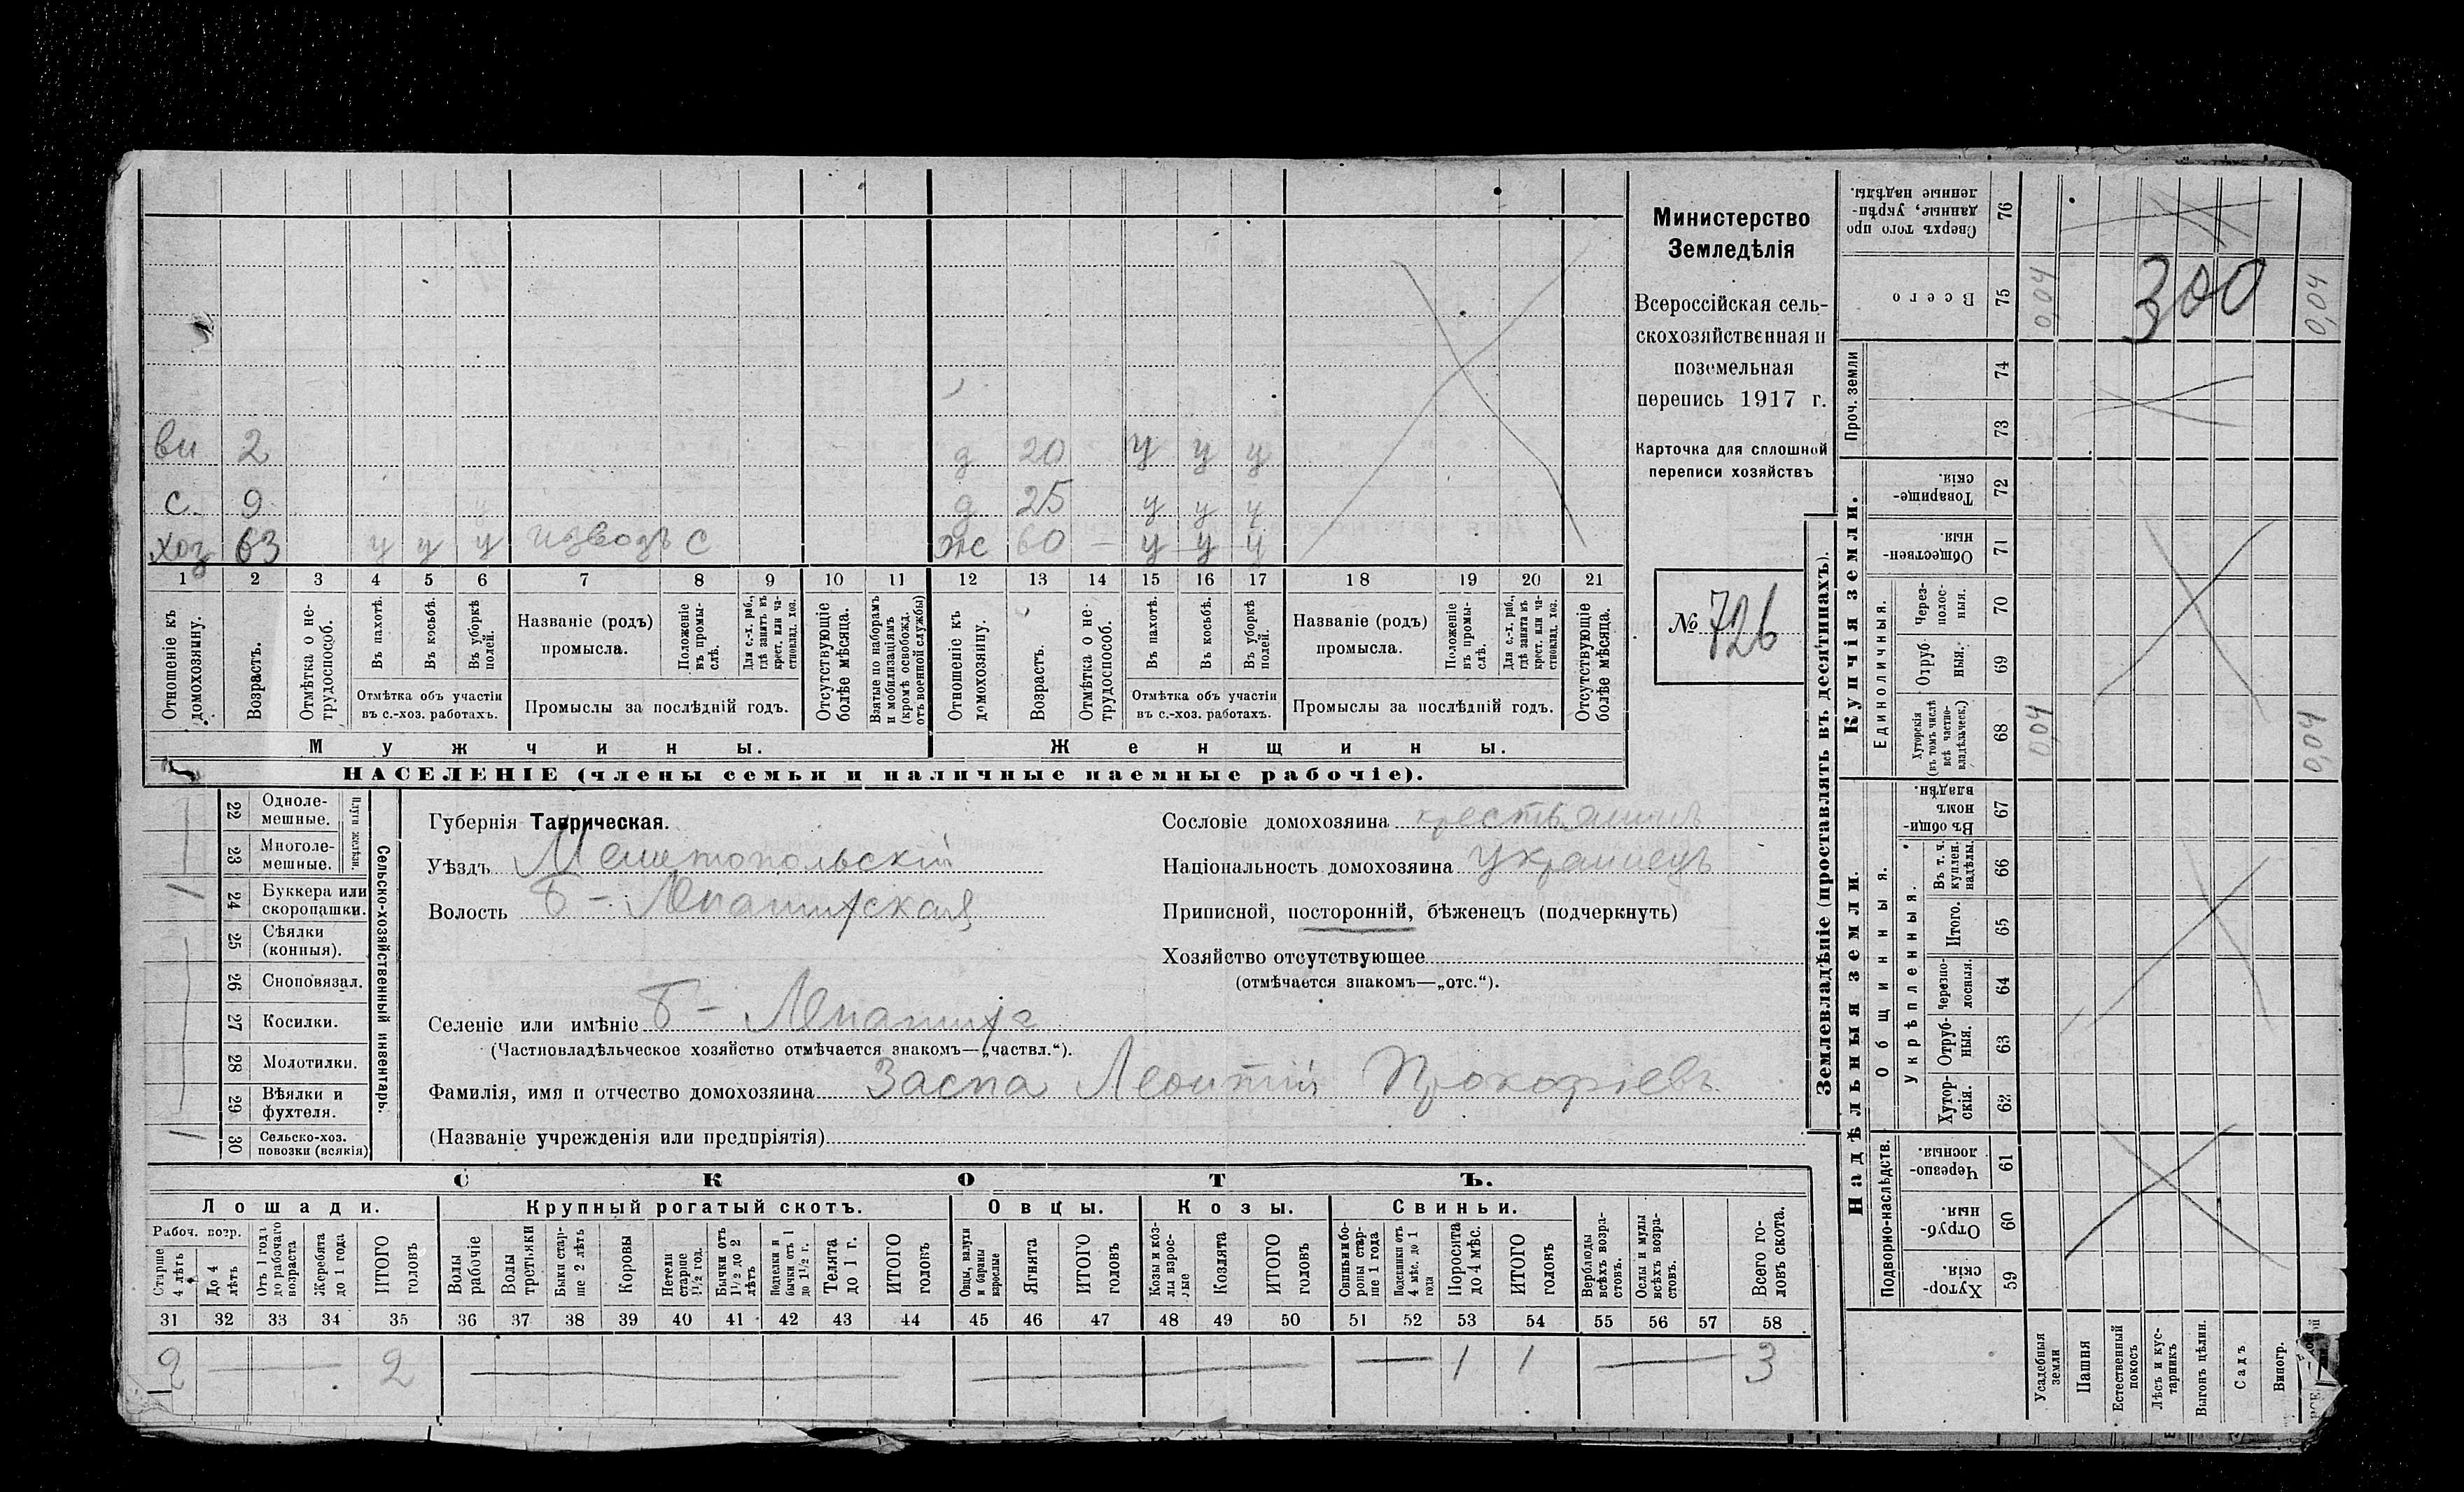 ви 2 д 20 у у у
с. 9 д 25 у у у
хоз 63 у у у изводъ с жс 60 — у у у
1 2 3 4 5 6 7 8 9 10 11 12 13 14 15 16 17 18 19 20 21
Отношеніе къ домохозяину.
Возрастъ.
Отмѣтка о нетрудоспособ.
Въ пахотѣ.
Въ косьбѣ.
Въ уборкѣ полей.
Отмѣтка объ участіи
въ с.-хоз. работахъ.
Названіе (родъ)
промысла.
Положеніе въ промыслѣ.
Для с.-х. раб., гдѣ занятъ въ крест. или частновлад. хоз.
Промыслы за послѣдній годъ.
Отсутствующіе болѣе мѣсяца.
Взятые по наборамъ и мобилизаціямъ (кромѣ освобожд. отъ военной службы)
Отношеніе къ домохозяину.
Возрастъ.
Отмѣтка о нетрудоспособ.
Въ пахотѣ.
Въ косьбѣ.
Въ уборкѣ полей.
Отмѣтка объ участіи
въ с.-хоз. работахъ.
Названіе (родъ)
промысла.
Положеніе въ промыслѣ.
Для с.-х. раб., гдѣ занята въ крест. или частновлад. хоз.
Промыслы за послѣдній годъ.
Отсутствующіе болѣе мѣсяца.
Мужчины. Женщины.
НАСЕЛЕНІЕ (члены семьи и наличные наемные рабочіе).
Министерство
Земледѣлія
Всероссійская сель-
скохозяйственная и
поземельная
перепись 1917 г.
Карточка для сплошной
переписи хозяйствъ
№ 726
22 Одноле-
мешные.
23 Многоле-
мешные.
Плуги желѣзн.
24 Буккера или
скоропашки.
25 Сѣялки
(конныя).
26 Сноповязал.
27 Косилки.
28 Молотилки.
29 Вѣялки и
фухтеля.
30 Сельско-хоз.
повозки (всякія)
Сельско-хозяйственный инвентарь.
Губернія Таврическая.
Уѣздъ Мелитопольскій
Волость Б-Лепатихская
Селеніе или имѣніе Б-Лепатиха
(Частновладѣльческое хозяйство отмѣчается знакомъ—„частвл.“).
Фамилія, имя и отчество домохозяина Заспа Леонтій Прокофіевъ
(Названіе учрежденія или предпріятія)
Сословіе домохозяина крестьянинъ
Національность домохозяина Украинецъ
Приписной, посторонній, бѣженецъ (подчеркнуть)
Хозяйство отсутствующее
(отмѣчается знакомъ—„отс.“).
СКОТЪ.
Лошади. Крупный рогатый скотъ. Овцы. Козы. Свиньи.
Рабоч. возр.
Старше 4 лѣтъ
До 4 лѣтъ
Отъ 1 года до рабочаго возраста
Жеребята до 1 года
ИТОГО головъ
Волы рабочіе
Волы третьяки
Быки старше 2 лѣтъ
Коровы
Нетели старше 1½ год.
Бычки отъ 1½ до 2 лѣтъ
Подтелки и бычки отъ 1 до 1½ г.
Телята до 1 г.
ИТОГО головъ
Овцы, валухи и бараны взрослые
Ягнята
ИТОГО головъ
Козы и козлы взрослые
Козлята
ИТОГО головъ
Свиньи и боровы старше 1 года
Подсвинки отъ 4 мѣс. до 1 года
Поросята до 4 мѣс.
ИТОГО головъ
Верблюды всѣхъ возрастовъ.
Ослы и мулы всѣхъ возрастовъ.
Всего головъ скота.
31 32 33 34 35 36 37 38 39 40 41 42 43 44 45 46 47 48 49 50 51 52 53 54 55 56 57 58
2 2 1 1 3
Землевладѣніе (проставлять въ десятинахъ).
Надѣльныя земли. Купчія земли.
Проч. земли
Сверхъ того проданные, укрѣпленные надѣлы. 76
Всего 75 0,04 300 0,04
74
73
Товарищескія. 72
Общественныя. 71
Единоличныя.
Черезполосныя. 70
Отрубныя. 69
Хуторскія (въ томъ числѣ всѣ частновладѣльческ.) 68 0,04 0,04
Общинныя.
Въ общинномъ владѣн. 67
Укрѣпленныя.
Въ т. ч. куплен. надѣлы. 66
Итого. 65
Черезполосныя. 64
Отрубныя. 63
Хуторскія. 62
Подворно-наслѣдств.
Черезполосныя. 61
Отрубныя 60
Хуторскія. 59
Усадебныя земли
Пашня
Естественный покосъ
Лѣсъ и кустарникъ
Выгонъ цѣлин.
Садъ
Виногр.